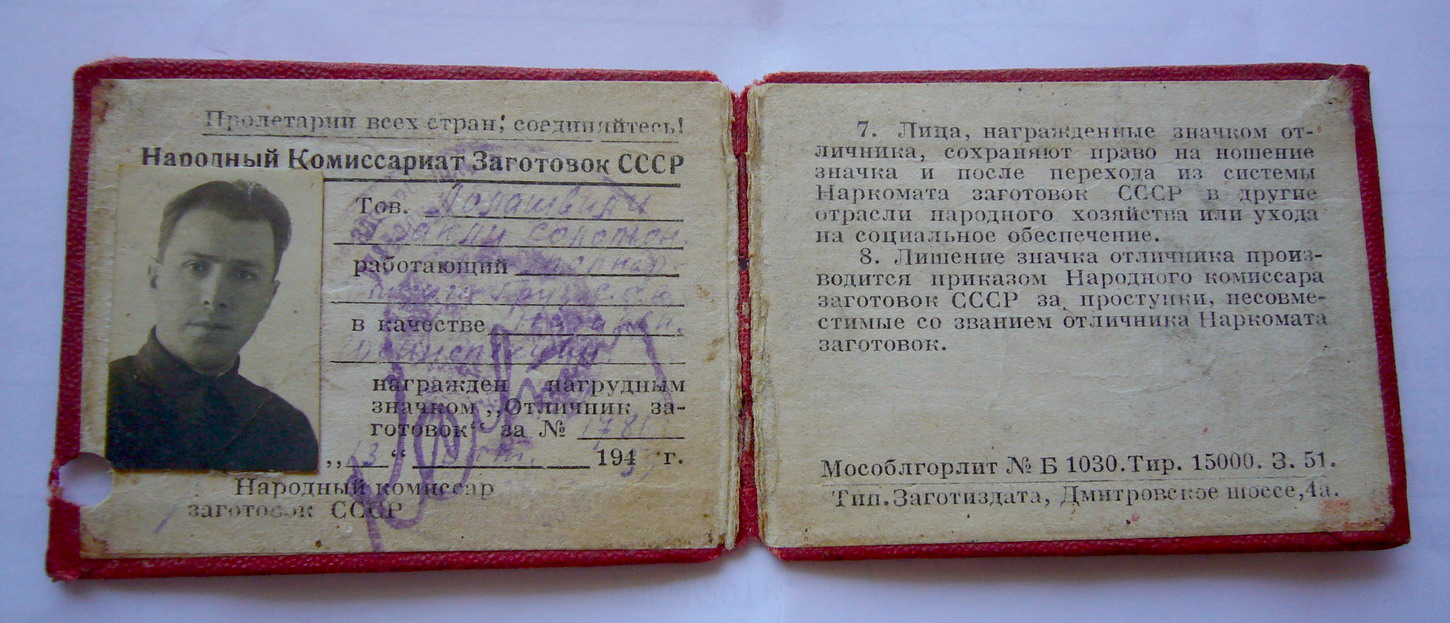 Пролетарии всех стран, соединяйтесь!
Народный Комиссариат Заготовок СССР
Тов.
работающий
в качестве
награжден нагрудным
значком „Отличник за-
готовок“ за № 1781
„13“ 194 г.
Народный комиссар
заготовок СССР
7. Лица, награжденные значком от-
личника, сохраняют право на ношение
значка и после перехода из системы
Наркомата заготовок СССР в другие
отрасли народного хозяйства или ухода
на социальное обеспечение.
8. Лишение значка отличника произ-
водится приказом Народного комиссара
заготовок СССР за проступки, несовме-
стимые со званием отличника Наркомата
заготовок.
Мособлгорлит № Б 1030. Тир. 15000. З. 51.
Тип. Заготиздата, Дмитровское шоссе, 4а.